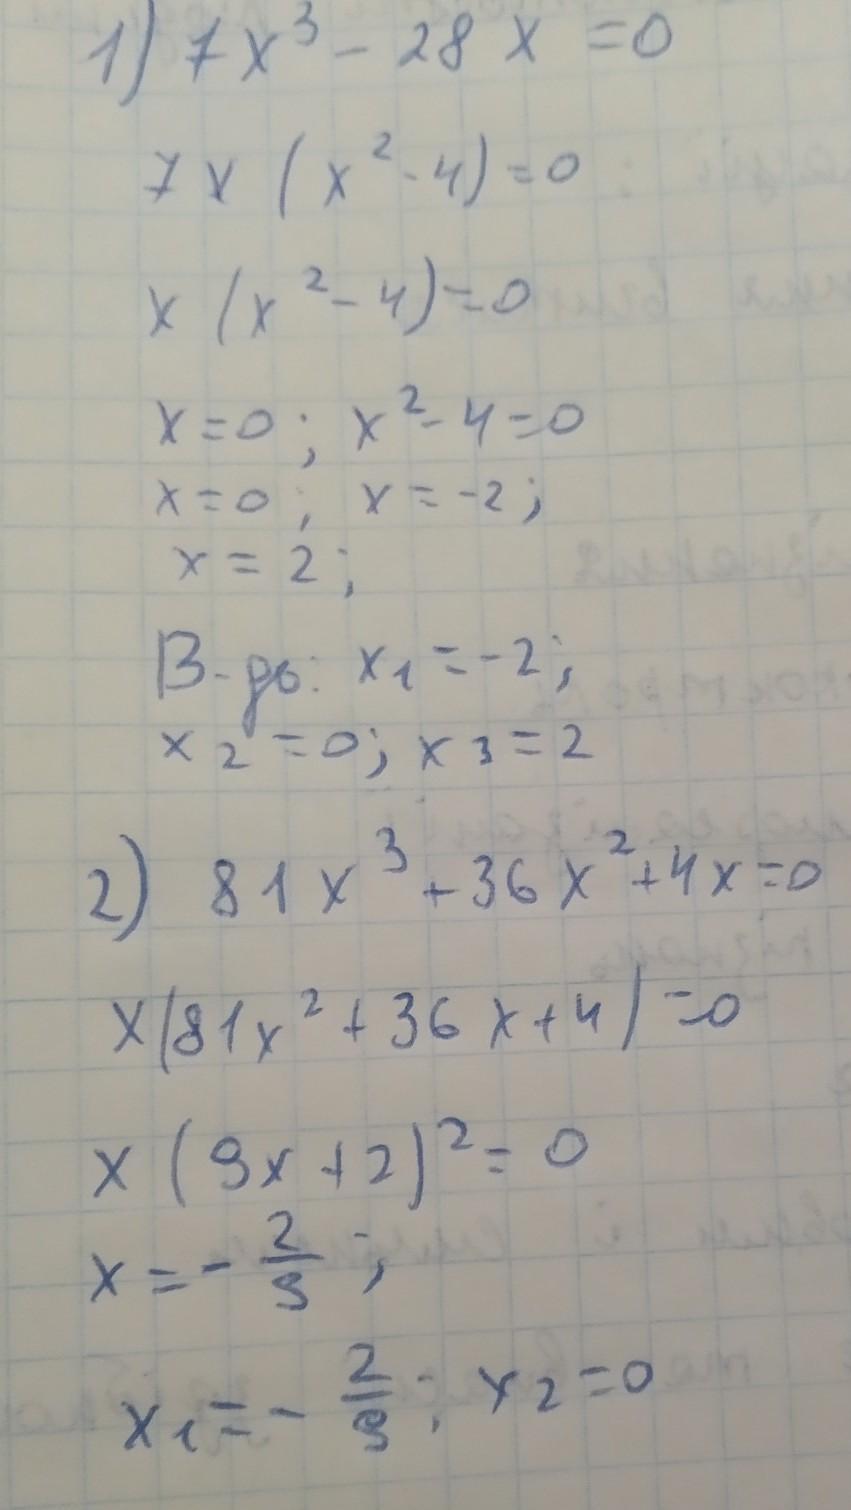 1) 7x³ - 28x = 0
7x (x² - 4) = 0
x (x² - 4) = 0
x = 0; x² - 4 = 0
x = 0; x = -2;
x = 2;
В-дь: x₁ = -2;
x₂ = 0; x₃ = 2
2) 81x³ + 36x² + 4x = 0
x(81x² + 36x + 4) = 0
x (9x + 2)² = 0
x = - 2/9;
x₁ = - 2/9; x₂ = 0